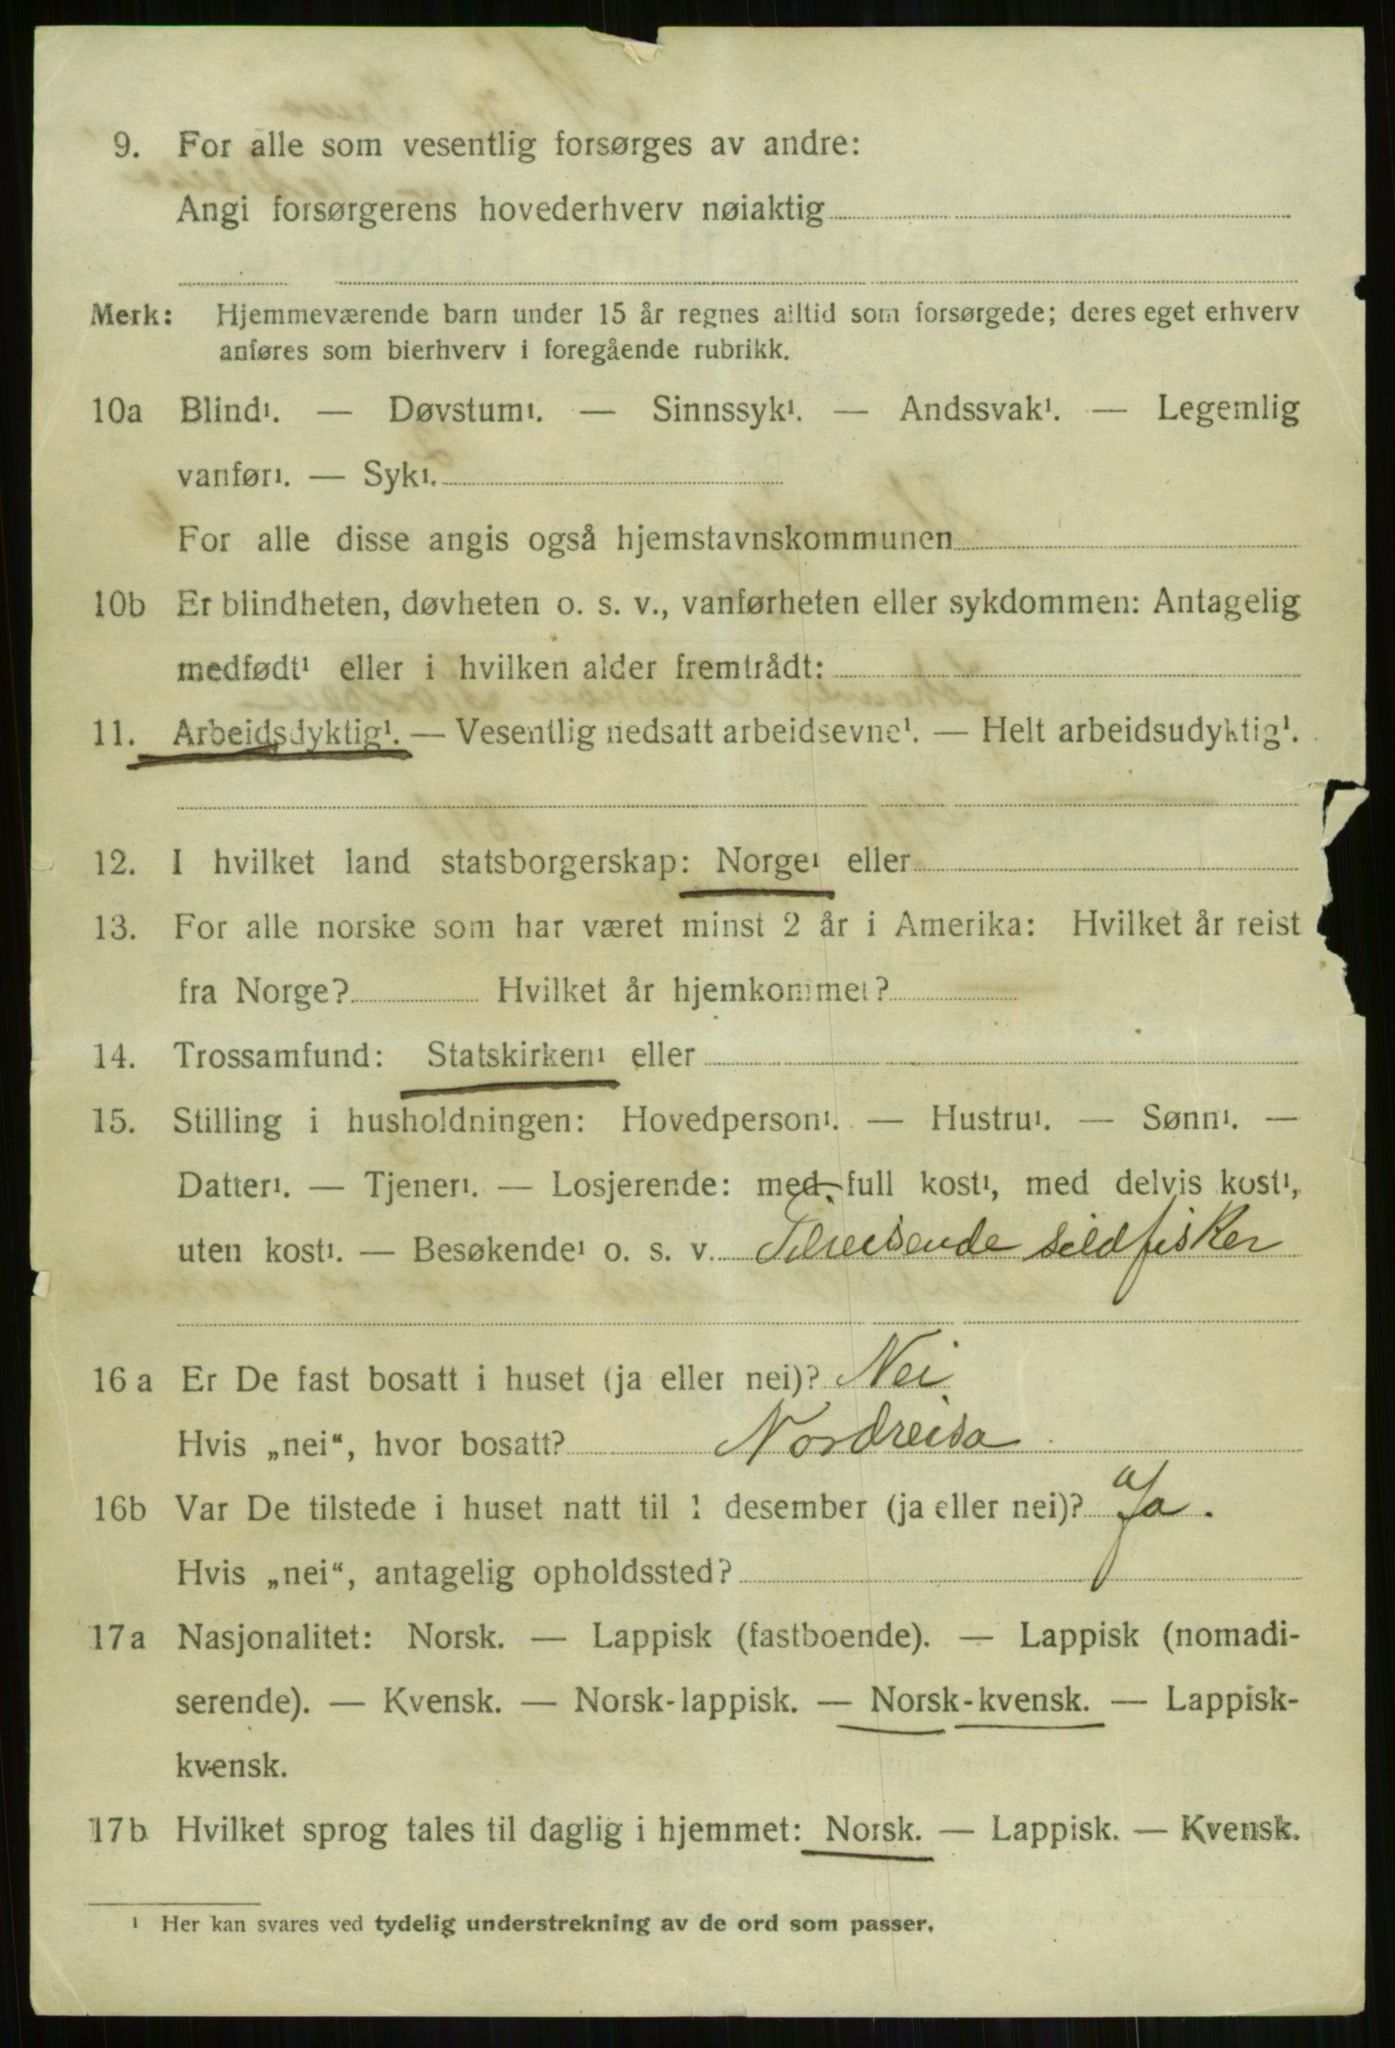 9. For alle som vesentlig forsørges av andre:
Angi forsørgerens hovederhverv nøiaktig
Merk: Hjemmeværende barn under 15 år regnes alltid som forsørgede; deres eget erhverv
anføres som bierhverv i foregående rubrikk.
10a Blind¹. — Døvstum¹. — Sinnssyk¹. — Andssvak¹. — Legemlig
vanfør¹. — Syk¹.
For alle disse angis også hjemstavnskommunen
10b Er blindheten, døvheten o. s. v., vanførheten eller sykdommen: Antagelig
medfødt¹ eller i hvilken alder fremtrådt:
11. Arbeidsdyktig¹. — Vesentlig nedsatt arbeidsevne¹. — Helt arbeidsudyktig¹.
12. I hvilket land statsborgerskap: Norge¹ eller
13. For alle norske som har været minst 2 år i Amerika: Hvilket år reist
fra Norge? Hvilket år hjemkommet?
14. Trossamfund: Statskirken¹ eller
15. Stilling i husholdningen: Hovedperson¹. — Hustru¹. — Sønn¹. —
Datter¹. — Tjener¹. — Losjerende: med full kost¹, med delvis kost¹,
uten kost¹. — Besøkende¹ o. s. v. Tilreisende sildfisker
16 a Er De fast bosatt i huset (ja eller nei)? Nei
Hvis „nei“, hvor bosatt? Nordreisa
16b Var De tilstede i huset natt til 1 desember (ja eller nei)? Ja.
Hvis „nei“, antagelig opholdssted?
17a Nasjonalitet: Norsk. — Lappisk (fastboende). — Lappisk (nomadi-
serende). — Kvensk. — Norsk-lappisk. — Norsk-kvensk. — Lappisk-
kvensk.
17b Hvilket sprog tales til daglig i hjemmet: Norsk. — Lappisk. — Kvensk.
¹ Her kan svares ved tydelig understrekning av de ord som passer.